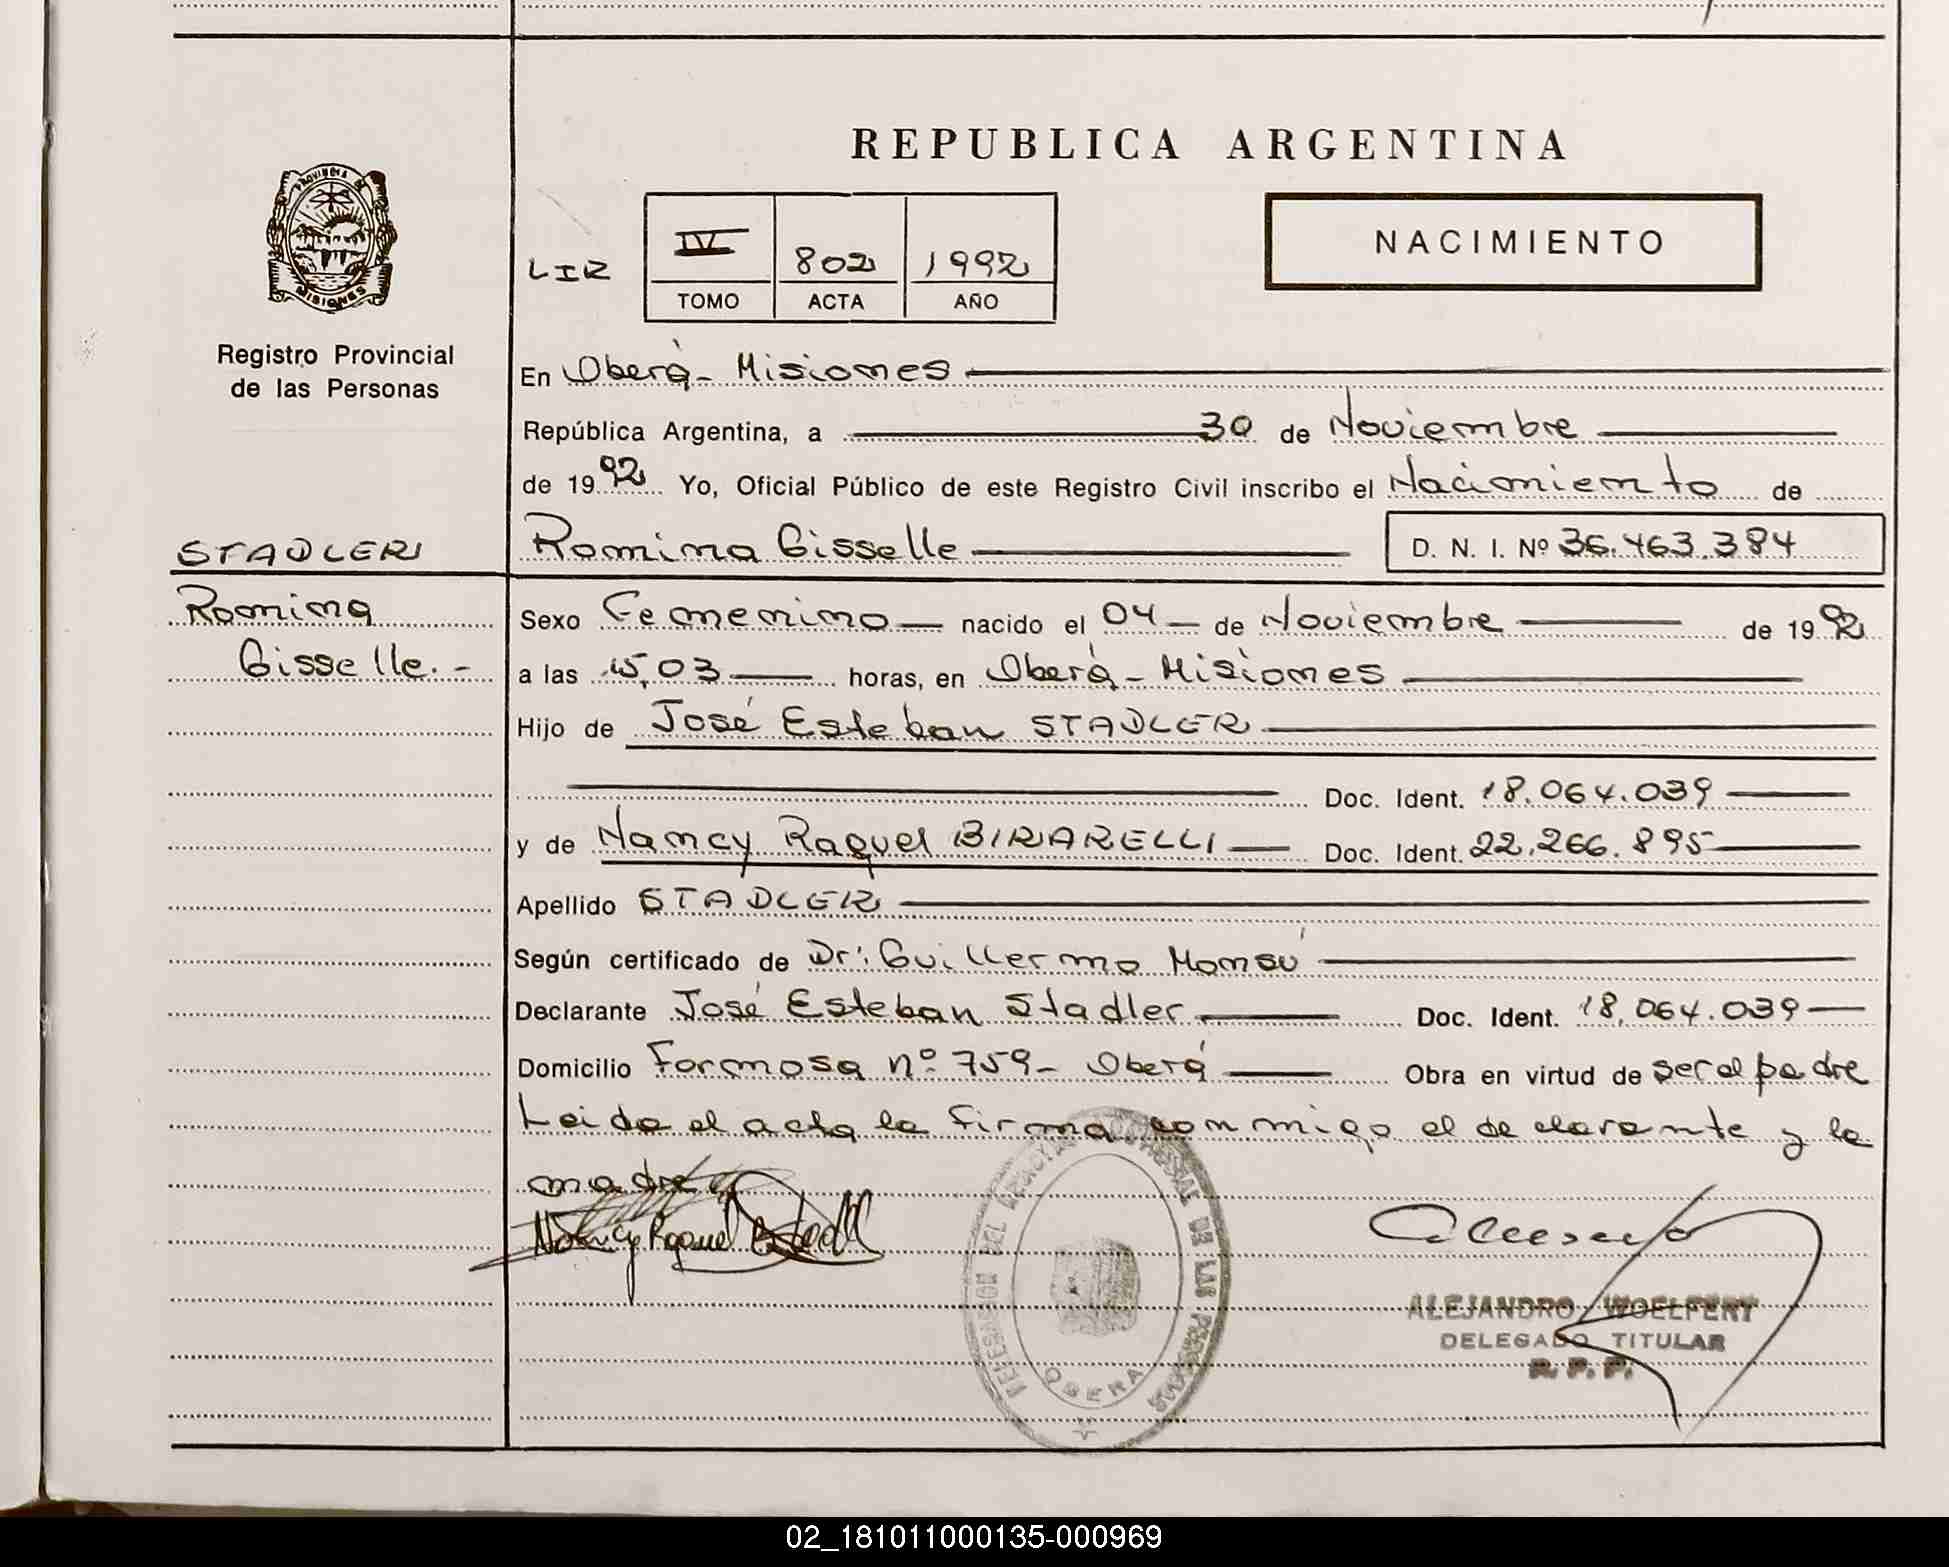 REPUBLICA ARGENTINA
PROVINCIA DE
MISIONES
Registro Provincial
de las Personas
LIR
IV 802 1992
TOMO ACTA AÑO
NACIMIENTO
En Oberá - Misiones
República Argentina, a 30 de Noviembre
de 1992 Yo, Oficial Público de este Registro Civil inscribo el Nacimiento de
STADLER
Romina Gisselle D. N. I. Nº 36.463.384
Romina
Gisselle.-
Sexo Femenino nacido el 04 de Noviembre de 1992
a las 15,03 horas, en Oberá - Misiones
Hijo de José Esteban STADLER
Doc. Ident. 18.064.039
y de Nancy Raquel BIRARELLI Doc. Ident. 22.266.895
Apellido STADLER
Según certificado de Dr: Guillermo Monsú
Declarante José Esteban Stadler Doc. Ident. 18.064.039
Domicilio Formosa nº 759 - Oberá Obra en virtud de ser el padre
Leida el acta la firma conmigo el declarante y la
madre
Nancy Raquel
DELEGACION DEL REGISTRO PROVINCIAL DE LAS PERSONAS
OBERA
ALEJANDRO WOELFERT
DELEGADO TITULAR
R. P. P.
02_181011000135-000969